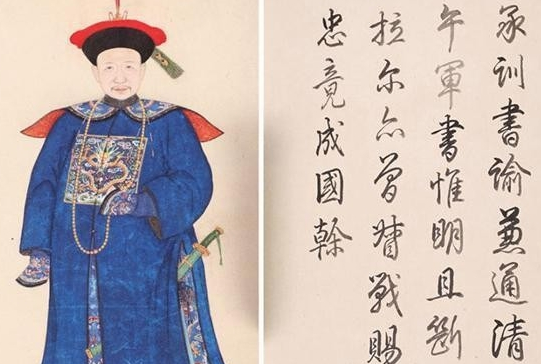 承訓書諭兼通清
午軍書惟明且斷
拉尔亦曾督戰賜
忠竟成國幹